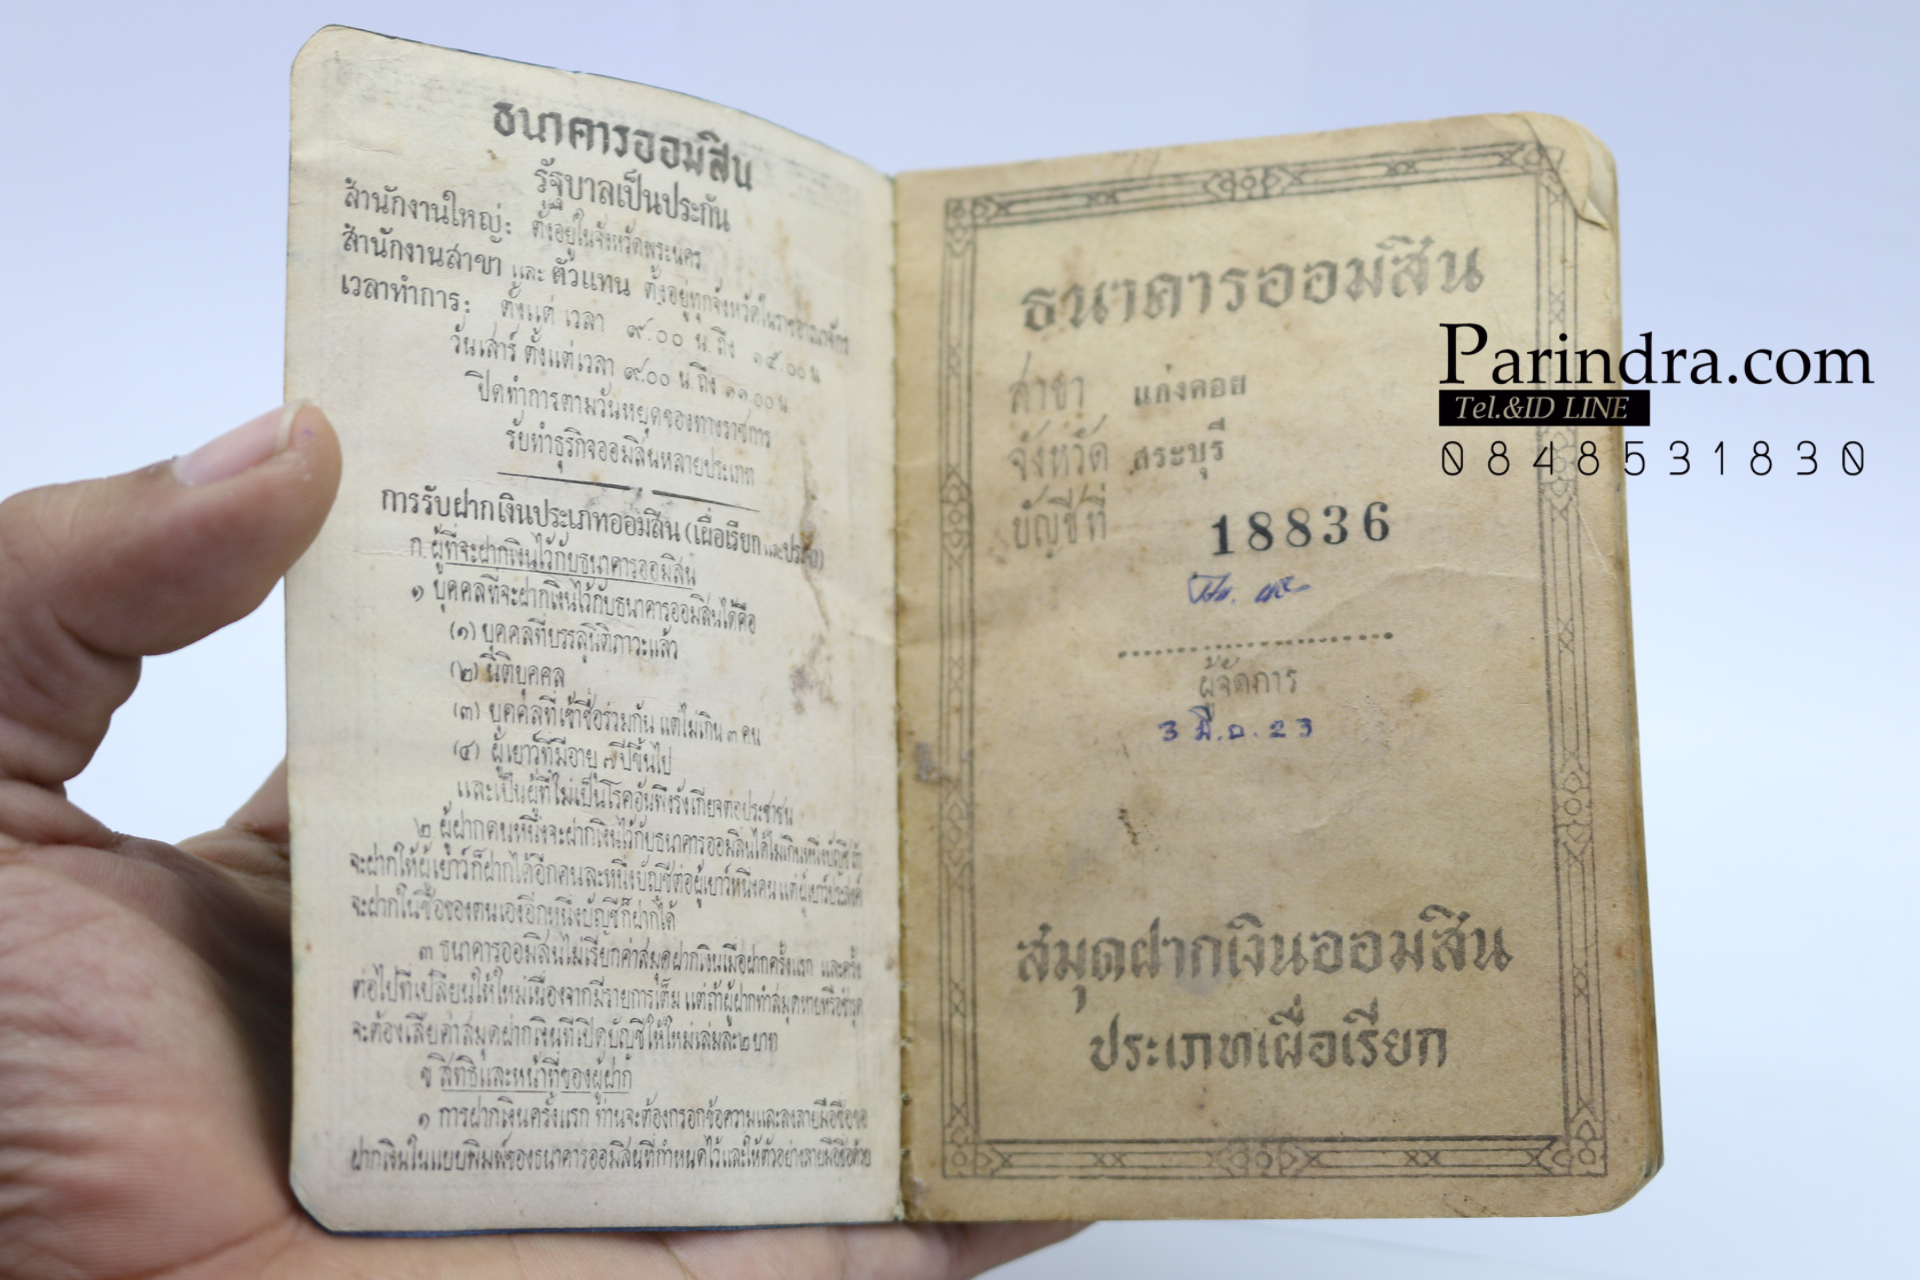 ธนาคารออมสิน
รัฐบาลเป็นประกัน
สำนักงานใหญ่: ตั้งอยู่ในจังหวัดพระนคร
สำนักงานสาขา และ ตัวแทน ตั้งอยู่ทุกจังหวัดในราชอาณาจักร
เวลาทำการ: ตั้งแต่ เวลา ๙.๐๐ น. ถึง ๑๕.๐๐ น
วันเสาร์ ตั้งแต่เวลา ๙.๐๐ น. ถึง ๑๑.๐๐ น
ปิดทำการตามวันหยุดของทางราชการ
รับทำธุรกิจออมสินหลายประเภท
การรับฝากเงินประเภทออมสิน (เผื่อเรียก และประจำ)
ก. ผู้ที่จะฝากเงินไว้กับธนาคารออมสิน
๑ บุคคลที่จะฝากเงินไว้กับธนาคารออมสินได้คือ
(๑) บุคคลที่บรรลุนิติภาวะแล้ว
(๒) นิติบุคคล
(๓) บุคคลที่เข้าชื่อร่วมกัน แต่ไม่เกิน ๓ คน
(๔) ผู้เยาว์ที่มีอายุ ๗ ปีขึ้นไป
และเป็นผู้ที่ไม่เป็นโรคอันพึงรังเกียจต่อประชาชน
๒ ผู้ฝากคนหนึ่งจะฝากเงินไว้กับธนาคารออมสินได้ไม่เกินหนึ่งบัญชี ถ้า
จะฝากให้ผู้เยาว์ก็ฝากได้อีกคนละหนึ่งบัญชีต่อผู้เยาว์หนึ่งคน แต่ผู้เยาว์ประสงค์
จะฝากในชื่อของตนเองอีกหนึ่งบัญชีก็ฝากได้
๓ ธนาคารออมสินไม่เรียกค่าสมุดฝากเงินเมื่อฝากครั้งแรก และครั้ง
ต่อไปที่เปลี่ยนให้ใหม่เนื่องจากมีรายการเต็ม แต่ถ้าผู้ฝากทำสมุดหายหรือชำรุด
จะต้องเสียค่าสมุดฝากเงินที่เปิดบัญชีให้ใหม่เล่มละ ๒ บาท
ข สิทธิและหน้าที่ของผู้ฝาก
๑ การฝากเงินครั้งแรก ท่านจะต้องกรอกข้อความและลงลายมือชื่อขอ
ฝากเงินในแบบพิมพ์ของธนาคารออมสินที่กำหนดไว้และให้ตัวอย่างลายมือชื่อด้วย
ธนาคารออมสิน
สาขา แก่งคอย
จังหวัด สระบุรี
บัญชีที่ 18836
ผู้จัดการ
3 มี.ค. 23
สมุดฝากเงินออมสิน
ประเภทเผื่อเรียก
Parindra.com
Tel.&ID LINE
0848531830